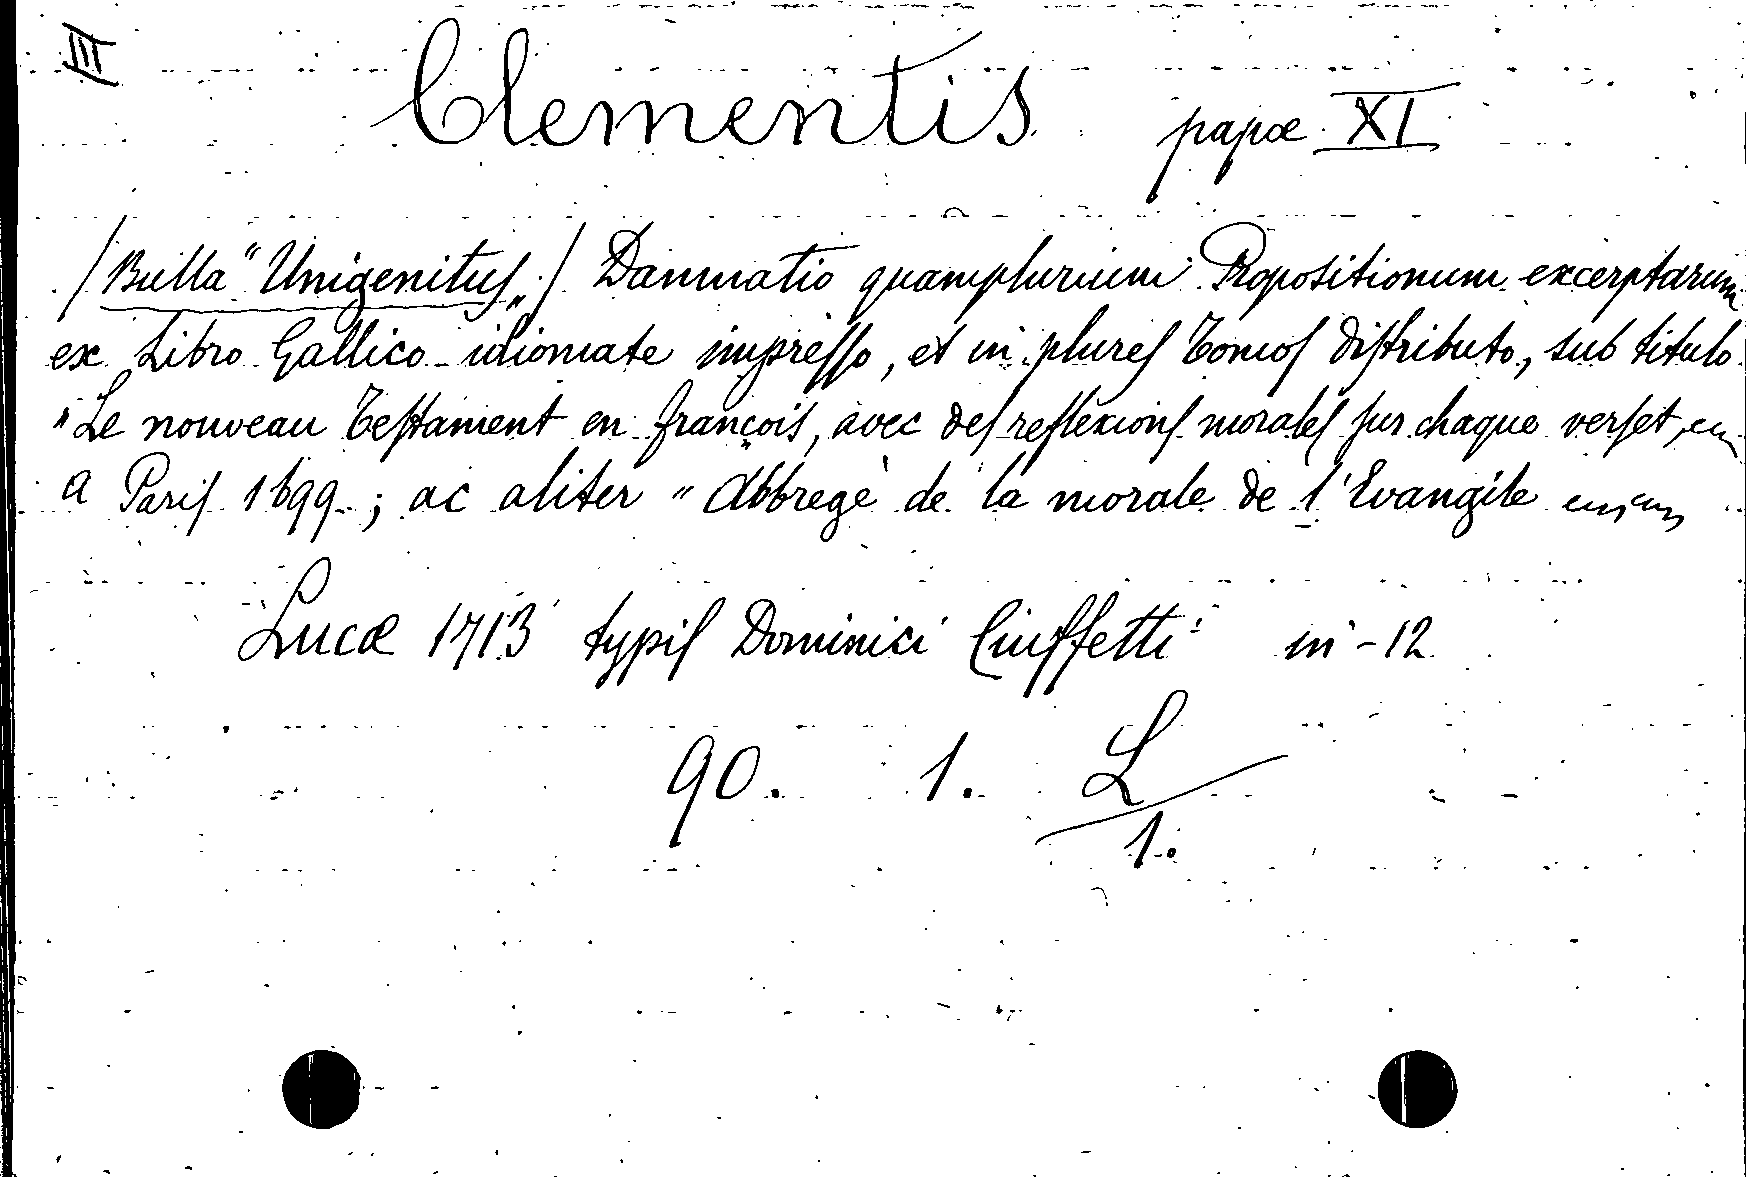 III
Clementis papæ XI
/Bulla "Unigenitus„/ Damnatio quamplurium Propositionum excerptarum
ex Libro Gallico idiomate impresso, et in plures Tomos distributo, sub titulo
"Le nouveau Testament en françois, avec des reflexions morales sur chaque verset,
a Paris 1699.; ac aliter "Abbregé de la morale de l'Evangile
Lucæ 1713 typis Dominici Ciuffetti in-12
90. 1. L
1.